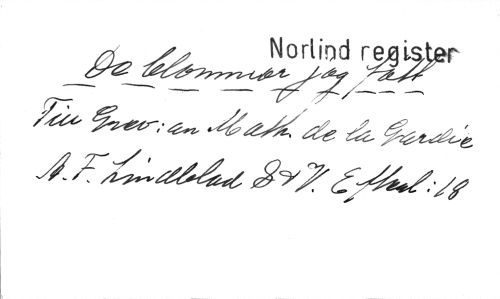 Norlind register
De blommor jag fått
Till Grev:an Math. de la Gardie
A. F. Lindblad S & V. Efterl: 18